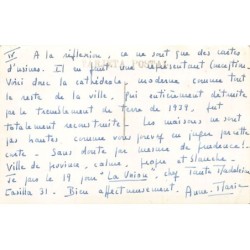 IV A la réflexion, ce ne sont que des cartes
d'usines. Il en faut une représentant Concepcion.
Voici donc la cathédrale, moderne comme tout
le reste de la ville, qui entièrement détruite
par le tremblement de terre de 1939, fut
totalement reconstruite - Les maisons ne sont
pas hautes comme vous pouvez en juger par cette
carte. Sans doute par mesure de prudence!
Ville de province, calme, propre et blanche.
Je pars le 19 pour "La Union", chez Tante Madeleine
Casilla 31. Bien affectueusement. Anne-Marie